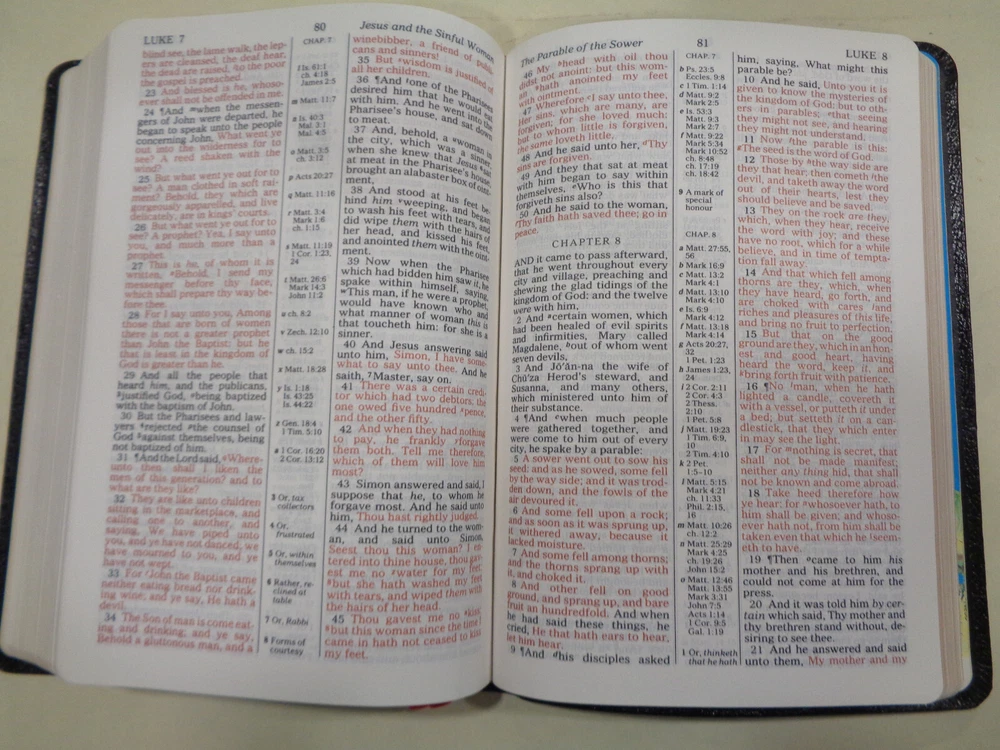 LUKE 7
80
Jesus and the Sinful Woman
blind see, the lame walk, the lep-
ers are cleansed, the deaf hear,
the dead are raised, to the poor
the gospel is preached.
23 And blessed is he, whoso-
ever shall not be offended in me.
24 ¶And when the messen-
gers of John were departed, he
began to speak unto the people
concerning John, What went ye
out into the wilderness for to
see? A reed shaken with the
wind?
25 But what went ye out for to
see? A man clothed in soft rai-
ment? Behold, they which are
gorgeously apparelled, and live
delicately, are in kings' courts.
26 But what went ye out for to
see? A prophet? Yea, I say unto
you, and much more than a
prophet.
27 This is he, of whom it is
written, Behold, I send my
messenger before thy face,
which shall prepare thy way be-
fore thee.
28 For I say unto you, Among
those that are born of women
there is not a greater prophet
than John the Baptist: but he
that is least in the kingdom of
God is greater than he.
29 And all the people that
heard him, and the publicans,
justified God, being baptized
with the baptism of John.
30 But the Pharisees and law-
yers rejected the counsel of
God against themselves, being
not baptized of him.
31 ¶And the Lord said, Where-
unto then shall I liken the
men of this generation? and to
what are they like?
32 They are like unto children
sitting in the marketplace, and
calling one to another, and
saying, We have piped unto
you, and ye have not danced; we
have mourned to you, and ye
have not wept.
33 For John the Baptist came
neither eating bread nor drink-
ing wine; and ye say, He hath a
devil.
34 The Son of man is come eat-
ing and drinking; and ye say,
Behold a gluttonous man, and a
CHAP. 7
l Is. 61:1
ch. 4:18
James 2:5
m Matt. 11:7
n Is. 40:3
Mal. 3:1
Mal. 4:5
o Matt. 3:5
ch. 3:12
p Acts 20:27
q Matt. 11:16
r Matt. 3:4
Mark 1:6
ch. 1:15
s Matt. 11:19
1 Cor. 1:23,
24
t Matt. 26:6
Mark 14:3
John 11:2
u ch. 8:2
v Zech. 12:10
w ch. 15:2
x Matt. 18:28
y Is. 1:18
Is. 43:25
Is. 44:22
z Gen. 18:4
1 Tim. 5:10
a 1 Cor. 16:20
2 Cor. 13:12
3 Or, tax
collectors
4 Or,
frustrated
5 Or, within
themselves
6 Rather, re-
clined at
table
7 Or, Rabbi
8 Forms of
courtesy
winebibber, a friend of publi-
cans and sinners!
35 But wisdom is justified of
all her children.
36 ¶And one of the Pharisees
desired him that he would eat
with him. And he went into the
Pharisee's house, and sat down
to meat.
37 And, behold, a woman in
the city, which was a sinner,
when she knew that Jesus sat
at meat in the Pharisee's house,
brought an alabaster box of oint-
ment,
38 And stood at his feet be-
hind him weeping, and began
to wash his feet with tears, and
did wipe them with the hairs of
her head, and kissed his feet,
and anointed them with the oint-
ment.
39 Now when the Pharisee
which had bidden him saw it, he
spake within himself, saying,
This man, if he were a prophet,
would have known who and
what manner of woman this is
that toucheth him: for she is a
sinner.
40 And Jesus answering said
unto him, Simon, I have some-
what to say unto thee. And he
saith, 7Master, say on.
41 There was a certain credi-
tor which had two debtors: the
one owed five hundred pence,
and the other fifty.
42 And when they had nothing
to pay, he frankly forgave
them both. Tell me therefore,
which of them will love him
most?
43 Simon answered and said, I
suppose that he, to whom he
forgave most. And he said unto
him, Thou hast rightly judged.
44 And he turned to the wom-
an, and said unto Simon,
Seest thou this woman? I en-
tered into thine house, thou gav-
est me no water for my feet:
but she hath washed my feet
with tears, and wiped them with
the hairs of her head.
45 Thou gavest me no kiss:
but this woman since the time I
came in hath not ceased to kiss
my feet.
The Parable of the Sower
81
LUKE 8
46 My head with oil thou
didst not anoint: but this wom-
an hath anointed my feet
with ointment.
47 Wherefore I say unto thee,
Her sins, which are many, are
forgiven; for she loved much:
but to whom little is forgiven,
the same loveth little.
48 And he said unto her, Thy
sins are forgiven.
49 And they that sat at meat
with him began to say within
themselves, Who is this that
forgiveth sins also?
50 And he said to the woman,
Thy faith hath saved thee; go in
peace.
CHAPTER 8
AND it came to pass afterward,
that he went throughout every
city and village, preaching and
shewing the glad tidings of the
kingdom of God: and the twelve
were with him,
2 And certain women, which
had been healed of evil spirits
and infirmities, Mary called
Magdalene, out of whom went
seven devils,
3 And Jō´ăn-na the wife of
Chū´za Herod's steward, and
Susanna, and many others,
which ministered unto him of
their substance.
4 ¶And when much people
were gathered together, and
were come to him out of every
city, he spake by a parable:
5 A sower went out to sow his
seed: and as he sowed, some fell
by the way side; and it was trod-
den down, and the fowls of the
air devoured it.
6 And some fell upon a rock;
and as soon as it was sprung up,
it withered away, because it
lacked moisture.
7 And some fell among thorns;
and the thorns sprang up with
it, and choked it.
8 And other fell on good
ground, and sprang up, and bare
fruit an hundredfold. And when
he had said these things, he
cried, He that hath ears to hear,
let him hear.
9 ¶And his disciples asked
CHAP. 7
b Ps. 23:5
Eccles. 9:8
c 1 Tim. 1:14
d Matt. 9:2
Mark 2:5
e Is. 53:3
Matt. 9:3
Mark 2:7
f Matt. 9:22
Mark 5:34
Mark 10:52
ch. 8:48
ch. 17:19
ch. 18:42
9 A mark of
special
honour
CHAP. 8
a Matt. 27:55,
56
b Mark 16:9
c Matt. 13:2
Mark 4:1
d Matt. 13:10
Mark 4:10
e Is. 6:9
Mark 4:12
f Matt. 13:18
Mark 4:14
g Acts 20:27,
32
1 Pet. 1:23
h James 1:23,
24
i 2 Cor. 2:11
2 Cor. 4:3
2 Thess.
2:10
1 Pet. 5:8
j Matt. 19:23
1 Tim. 6:9,
10
2 Tim. 4:10
k 2 Pet.
1:5-10
l Matt. 5:15
Mark 4:21
ch. 11:33
Phil. 2:15,
16
m Matt. 10:26
ch. 12:2
n Matt. 25:29
Mark 4:25
ch. 19:26
John 15:2
o Matt. 12:46
Matt. 13:55
Mark 3:31
John 7:5
Acts 1:14
1 Cor. 9:5
Gal. 1:19
1 Or, thinketh
that he hath
him, saying, What might this
parable be?
10 And he said, Unto you it is
given to know the mysteries of
the kingdom of God: but to oth-
ers in parables; that seeing
they might not see, and hearing
they might not understand.
11 Now the parable is this:
The seed is the word of God.
12 Those by the way side are
they that hear; then cometh the
devil, and taketh away the word
out of their hearts, lest they
should believe and be saved.
13 They on the rock are they,
which, when they hear, receive
the word with joy; and these
have no root, which for a while
believe, and in time of tempta-
tion fall away.
14 And that which fell among
thorns are they, which, when
they have heard, go forth, and
are choked with cares and
riches and pleasures of this life,
and bring no fruit to perfection.
15 But that on the good
ground are they, which in an hon-
est and good heart, having
heard the word, keep it, and
bring forth fruit with patience.
16 ¶No man, when he hath
lighted a candle, covereth it
with a vessel, or putteth it under
a bed; but setteth it on a can-
dlestick, that they which enter
in may see the light.
17 For nothing is secret, that
shall not be made manifest;
neither any thing hid, that shall
not be known and come abroad.
18 Take heed therefore how
ye hear: for whosoever hath, to
him shall be given; and whoso-
ever hath not, from him shall be
taken even that which he seem-
eth to have.
19 ¶Then came to him his
mother and his brethren, and
could not come at him for the
press.
20 And it was told him by cer-
tain which said, Thy mother and
thy brethren stand without, de-
siring to see thee.
21 And he answered and said
unto them, My mother and my